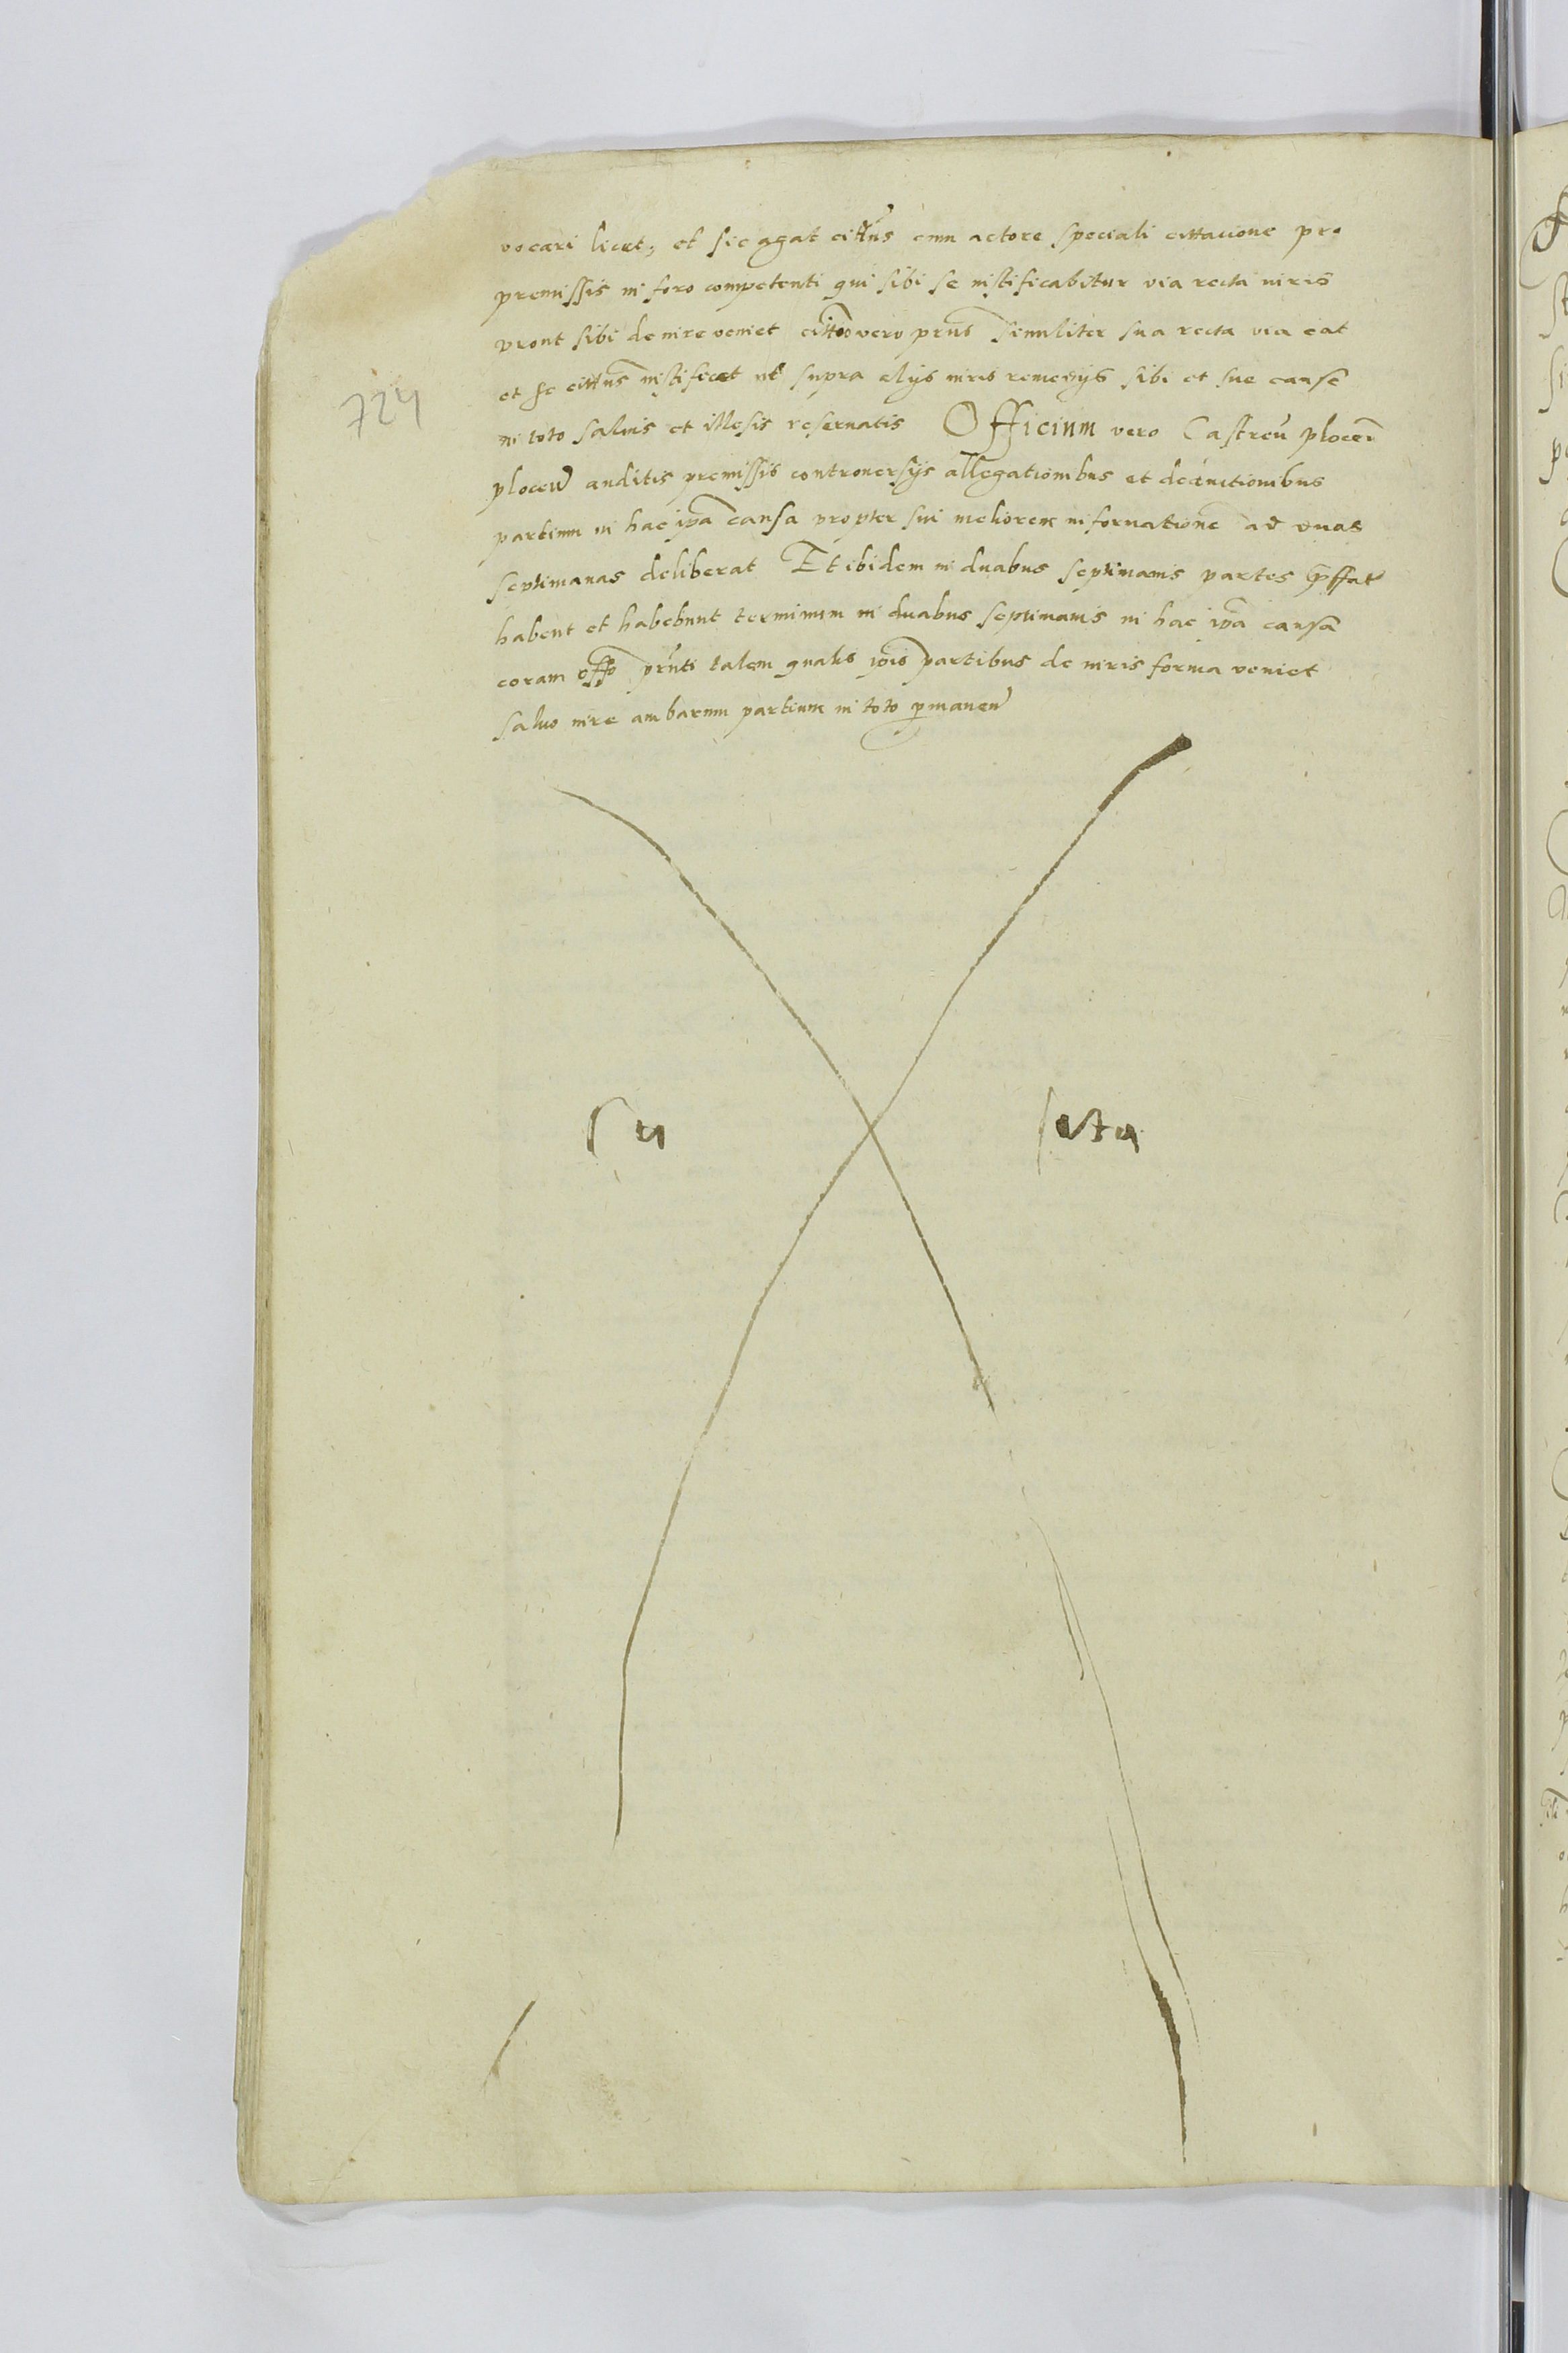 vocari licet, et sic agat cittus cum actore speciali cittacione pro
premissis in foro competenti qui sibi se iustificabitur via recta iuris
pront sibi de iure veniet citto vero prius similiter sua recta via eat
et se cittus iustificet ut supra alys iuris remedys sibi et sue cause
in toto salvis et illesis reseruatis Officium vero Castren plocen
plocen auditis premissis controuersys allegationibus et
partium in hac ipa causa propter sui meliorem informatione ad duas
septimanas deliberat Et ibidem in duabus septimanis partes pffat
habent et habebunt terminum in duabus septimanis in hac ipa causa
coram offo prnti talem qualis ipis partibus de iuris forma veniet
saluo iure ambarum partium in toto pmanen
724